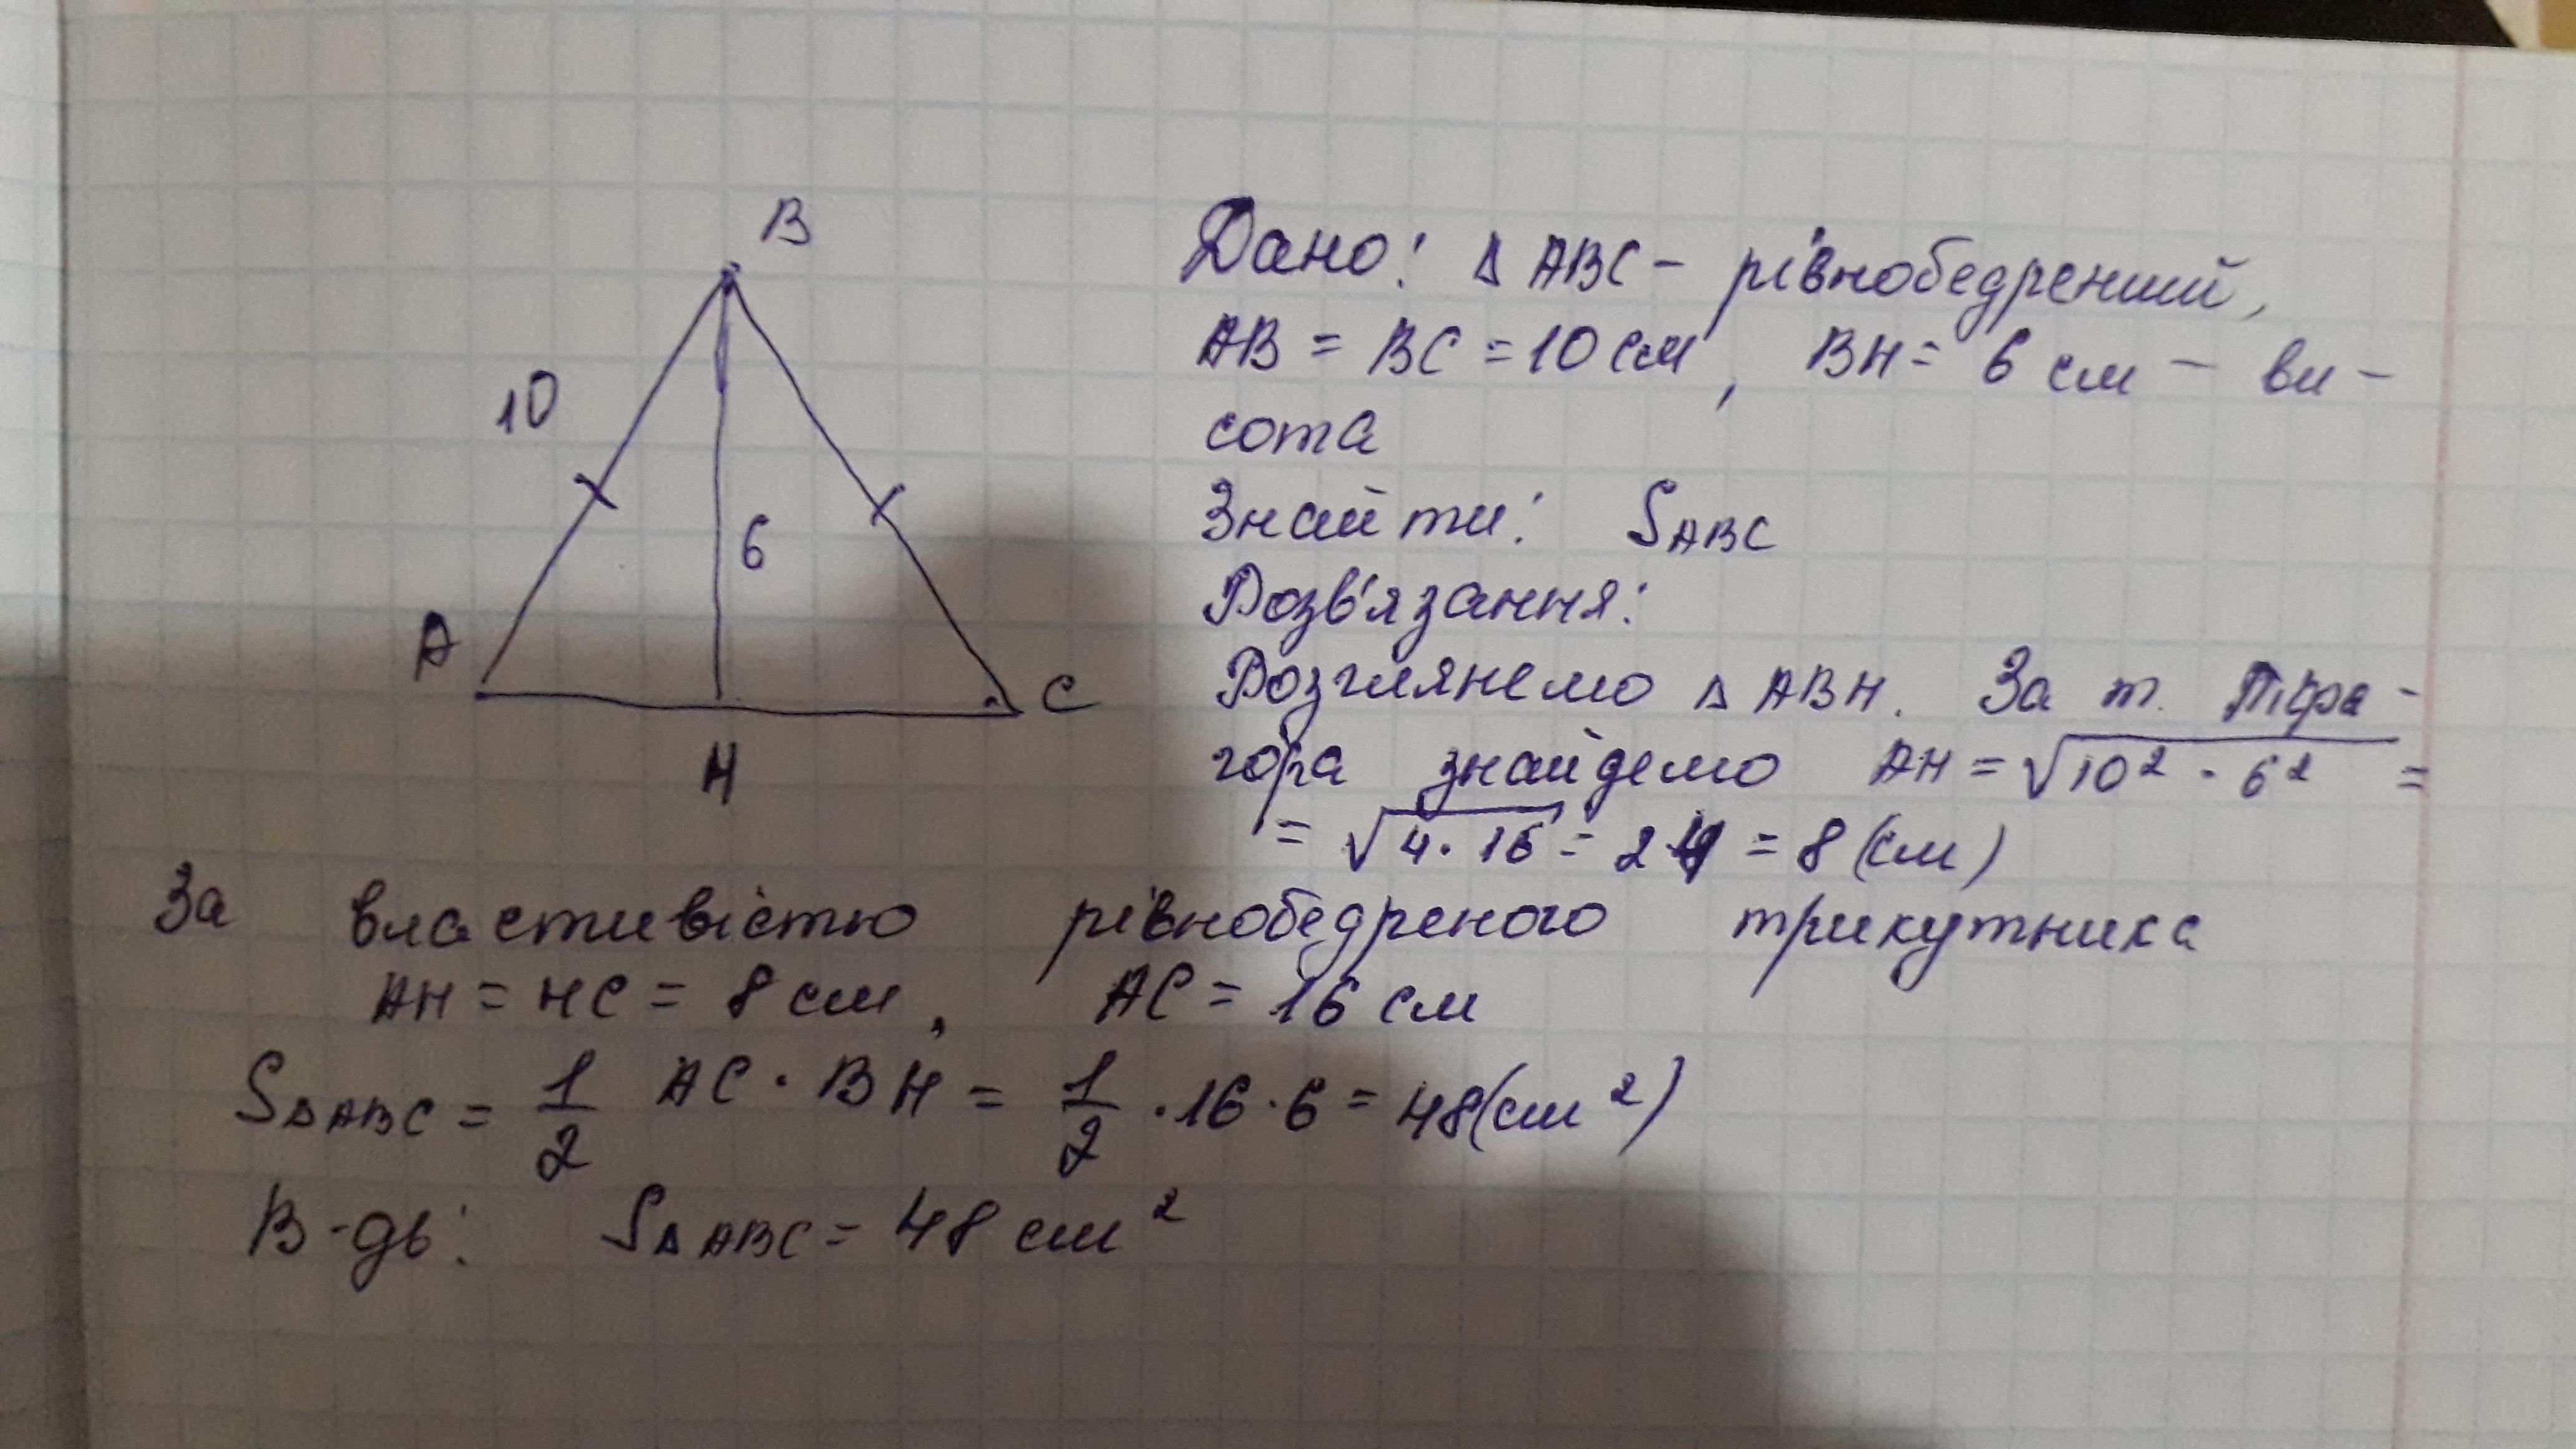 B
10
6
A
C
H
Дано: Δ ABC - рівнобедрений,
AB = BC = 10 см, BH = 6 см - ви-
сота
Знайти: SABC
Розв'язання:
Розглянемо Δ ABH. За т. Піфа-
гора знайдемо AH = √10² - 6² =
= √4·16 = 2·4 = 8 (см)
За властивістю рівнобедреного трикутника
AH = HC = 8 см, AC = 16 см
SΔABC = 1/2 AC · BH = 1/2 · 16 · 6 = 48(см²)
В-дь: SΔABC = 48 см²